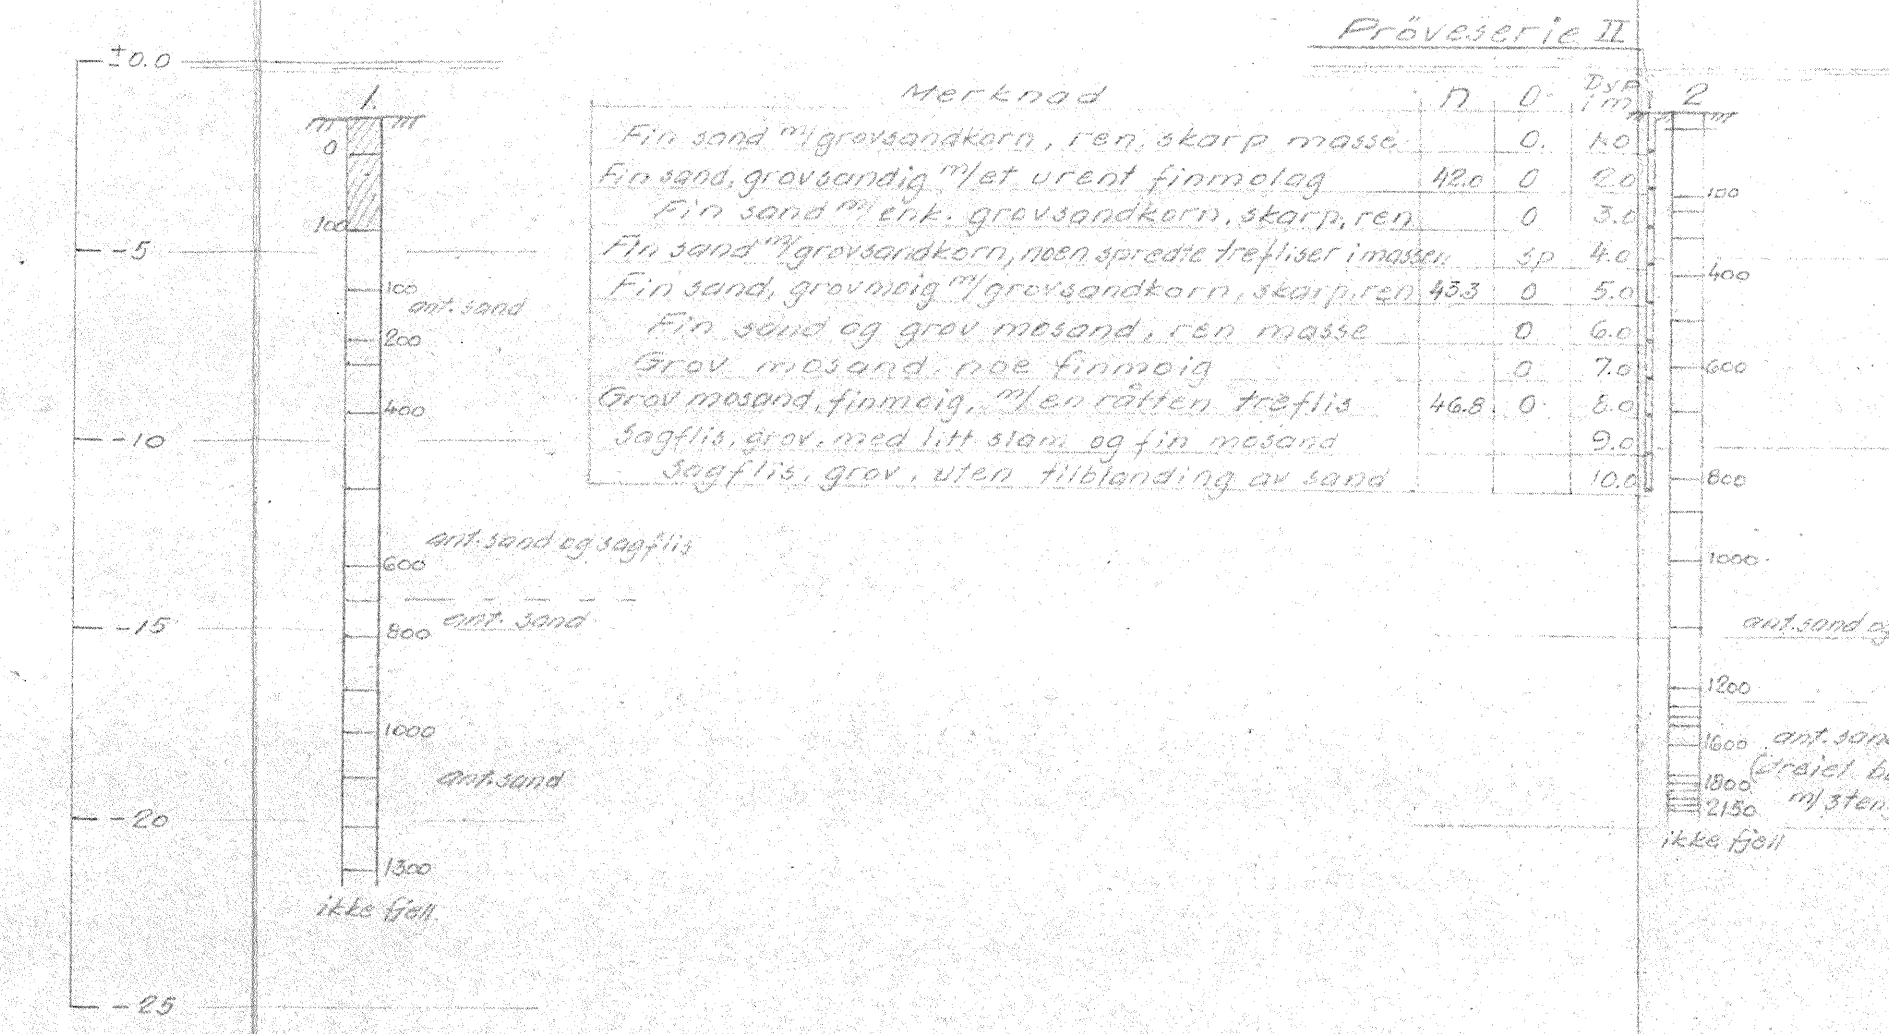 Pröveserie II
±0.0
1.
0
100
100
ant. sand
200
400
ant. sand og sagflis
600
ant. sand
800
1000
ant. sand
1300
ikke fjell
-5
-10
-15
-20
-25
Merknad n O Dyp i m
Fin sand m/grovsandkorn, ren, skarp masse 0. 1.0
Fin sand, grovsandig m/et urent finmolag 42.0 0 2.0
Fin sand m/enk. grovsandkorn, skarp, ren 0 3.0
Fin sand m/grovsandkorn, noen spredte trefliser i massen sp 4.0
Fin sand, grovmoig m/grovsandkorn, skarp, ren 43.3 0 5.0
Fin sand og grov mosand, ren masse 0 6.0
Grov mosand, noe finmoig 0 7.0
Grov mosand, finmoig, m/en råtten treflis 46.8 0 8.0
Sagflis, grov, med litt slam og fin mosand 9.0
Sagflis, grov, uten tilblanding av sand 10.0
2
100
400
600
800
1000
ant. sand og
1200
1600
ant. sand
(dreiet
1800
m/sten
2150
ikke fjell